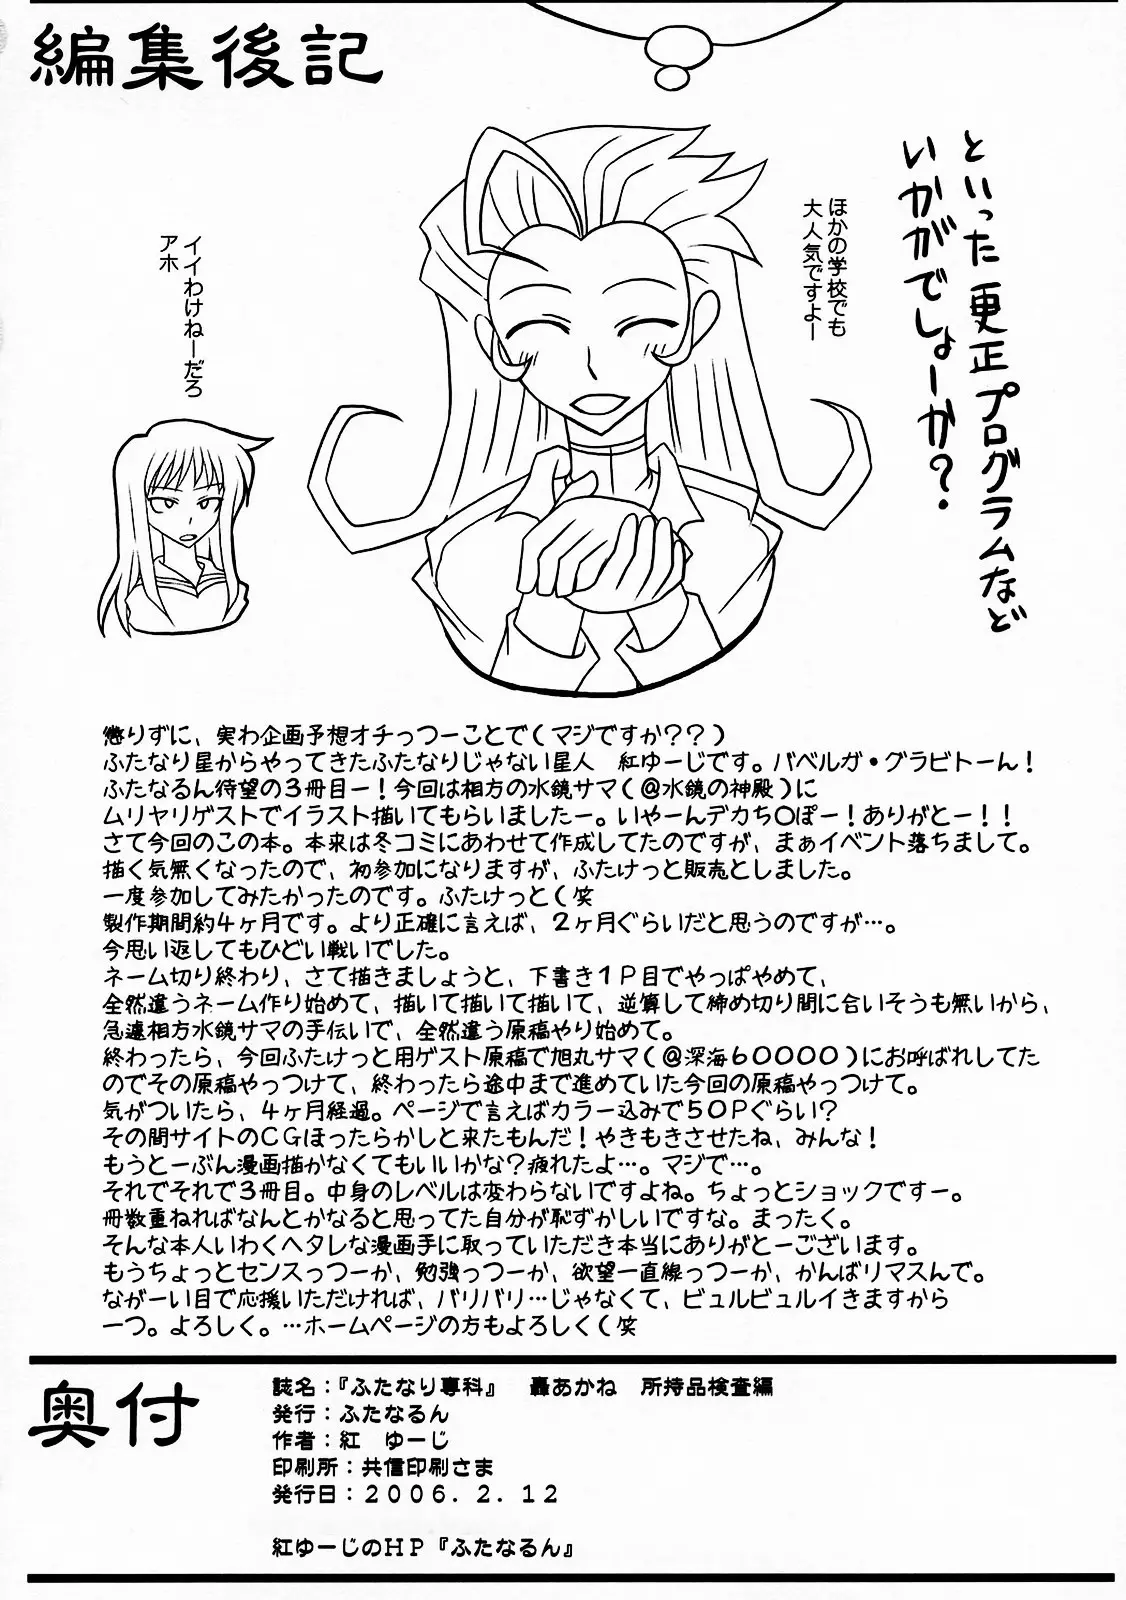 編集後記
といった更正プログラムなど
いかがでしょーか?
ほかの学校でも
大人気ですよー
イイわけねーだろ
アホ
懲りずに、実わ企画予想オチっつーことで(マジですか??)
ふたなり星からやってきたふたなりじゃない星人 紅ゆーじです。バベルガ・グラビトーん!
ふたなるん待望の3冊目ー!今回は相方の水鏡サマ(@水鏡の神殿)に
ムリヤリゲストでイラスト描いてもらいましたー。いやーんデカち○ぽー!ありがとー!!
さて今回のこの本。本来は冬コミにあわせて作成してたのですが、まぁイベント落ちまして。
描く気無くなったので、初参加になりますが、ふたけっと販売としました。
一度参加してみたかったのです。ふたけっと(笑
製作期間約4ヶ月です。より正確に言えば、2ヶ月ぐらいだと思うのですが…。
今思い返してもひどい戦いでした。
ネーム切り終わり、さて描きましょうと、下書き1P目でやっぱやめて、
全然違うネーム作り始めて、描いて描いて描いて、逆算して締め切り間に合いそうも無いから、
急遽相方水鏡サマの手伝いで、全然違う原稿やり始めて。
終わったら、今回ふたけっと用ゲスト原稿で旭丸サマ(@深海60000)にお呼ばれしてた
のでその原稿やっつけて、終わったら途中まで進めていた今回の原稿やっつけて。
気がついたら、4ヶ月経過。ページで言えばカラー込みで50Pぐらい?
その間サイトのCGほったらかしと来たもんだ!やきもきさせたね、みんな!
もうとーぶん漫画描かなくてもいいかな?疲れたよ…。マジで…。
それでそれで3冊目。中身のレベルは変わらないですよね。ちょっとショックですー。
冊数重ねればなんとかなると思ってた自分が恥ずかしいですな。まったく。
そんな本人いわくヘタレな漫画手に取っていただき本当にありがとーございます。
もうちょっとセンスっつーか、勉強っつーか、欲望一直線っつーか、かんばリマスんで。
ながーい目で応援いただければ、バリバリ…じゃなくて、ビュルビュルイきますから
一つ。よろしく。…ホームページの方もよろしく(笑
奥付
誌名:『ふたなり専科』 轟あかね 所持品検査編
発行:ふたなるん
作者:紅 ゆーじ
印刷所:共信印刷さま
発行日:2006.2.12
紅ゆーじのHP『ふたなるん』